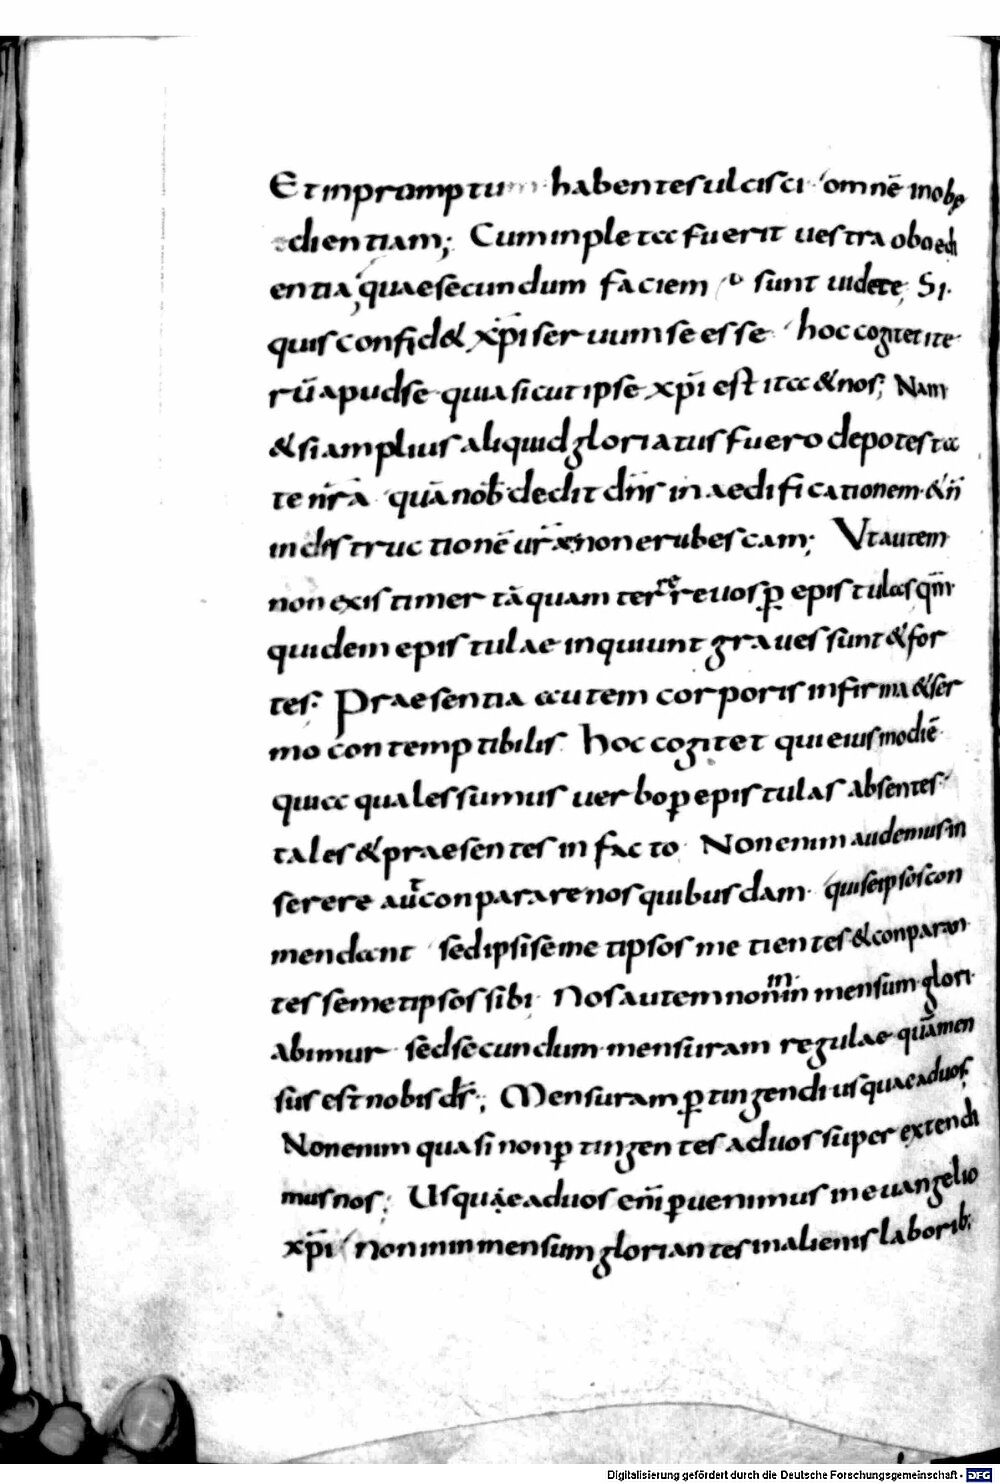 Et in promptum habentes ulcisci omnē inobe
dientiam; Cum inpleta fuerit uestra oboedi
entia, quae secundum faciem sunt uidete; Si
quis confid& xp̄i seruum se esse hoc cogitet ite
rū apud se quia sicut ipse xp̄i est ita & nos; Nam
& si amplius aliquid gloriatus fuero de potesta
te nr̄a quā nob̄ dedit dn̄s in aedificationem & n̄
in destructionē ur̄ae non erubescam; Ut autem
non existimer tāquam terrere uos p̱ epistulas qm̄
quidem epistulae inquiunt graues sunt & for
tes; Praesentia autem corporis infirma & ser
mo contemptibilis. Hoc cogitet qui eiusmodi ē
quia quales sumus uerbo p̱ epistulas absentes
tales & praesentes in facto. Non enim audemus in
serere aut conparare nos quibusdam qui seipsos con
mendant sed ipsi semetipsos metientes & conparan
tes semetipsos sibi. Nos autem non in inmensum glori
abimur sed secundum mensuram regulae quā men
sus est nobis ds̄; Mensuram p̱tingendi usquae ad uos;
Non enim quasi non p̱tingentes ad uos superextendi
mus nos; Usquae ad uos eni̅ p̱uenimus in euangelio
xp̄i non in inmensum gloriantes in alienis laborib;
Digitalisierung gefördert durch die Deutsche Forschungsgemeinschaft - DFG